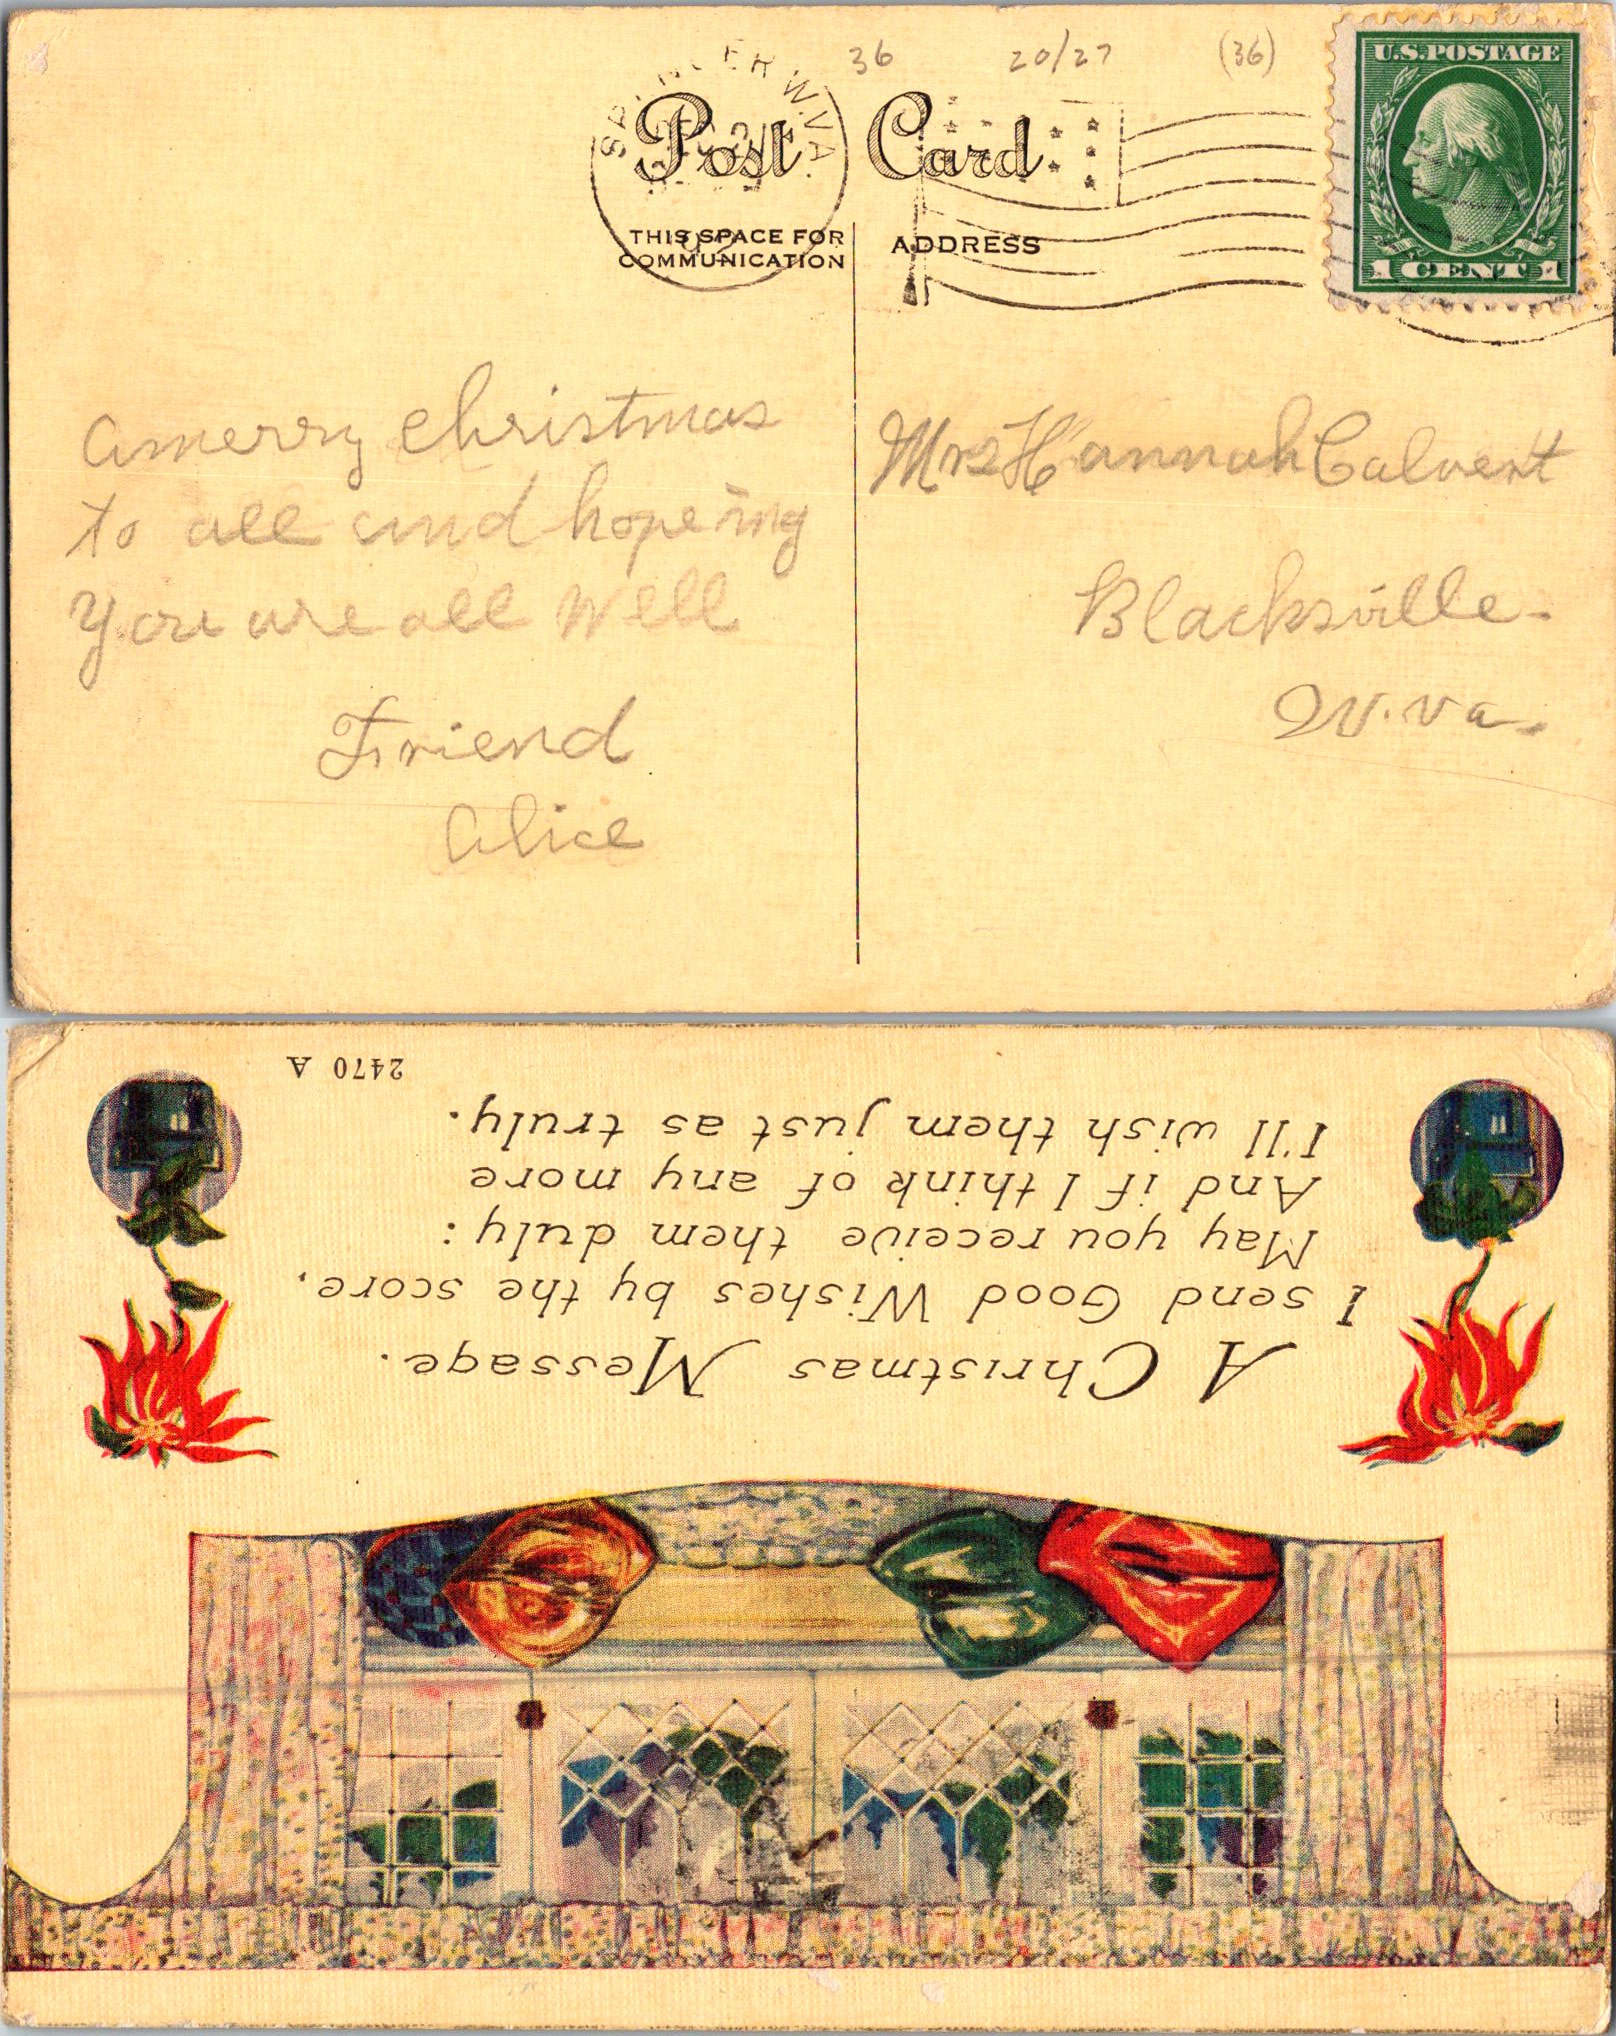 36 20/27 (36)
SPENCER W.VA.
U.S. POSTAGE
1 CENT 1
Post Card
THIS SPACE FOR
COMMUNICATION
ADDRESS
a merry christmas
to all and hopeing
you are all well
Friend
Alice
Mrs Hannah Calvert
Blacksville-
W.va.
A Christmas Message.
I send Good Wishes by the score,
May you receive them duly:
And if I think of any more
I'll wish them just as truly.
2470 A